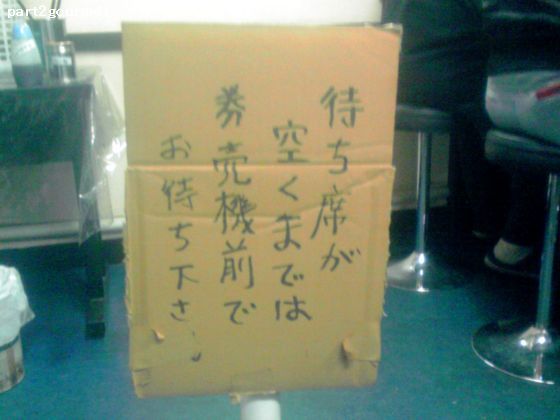 待ち席が
空くまでは
券売機前で
お待ち下さい